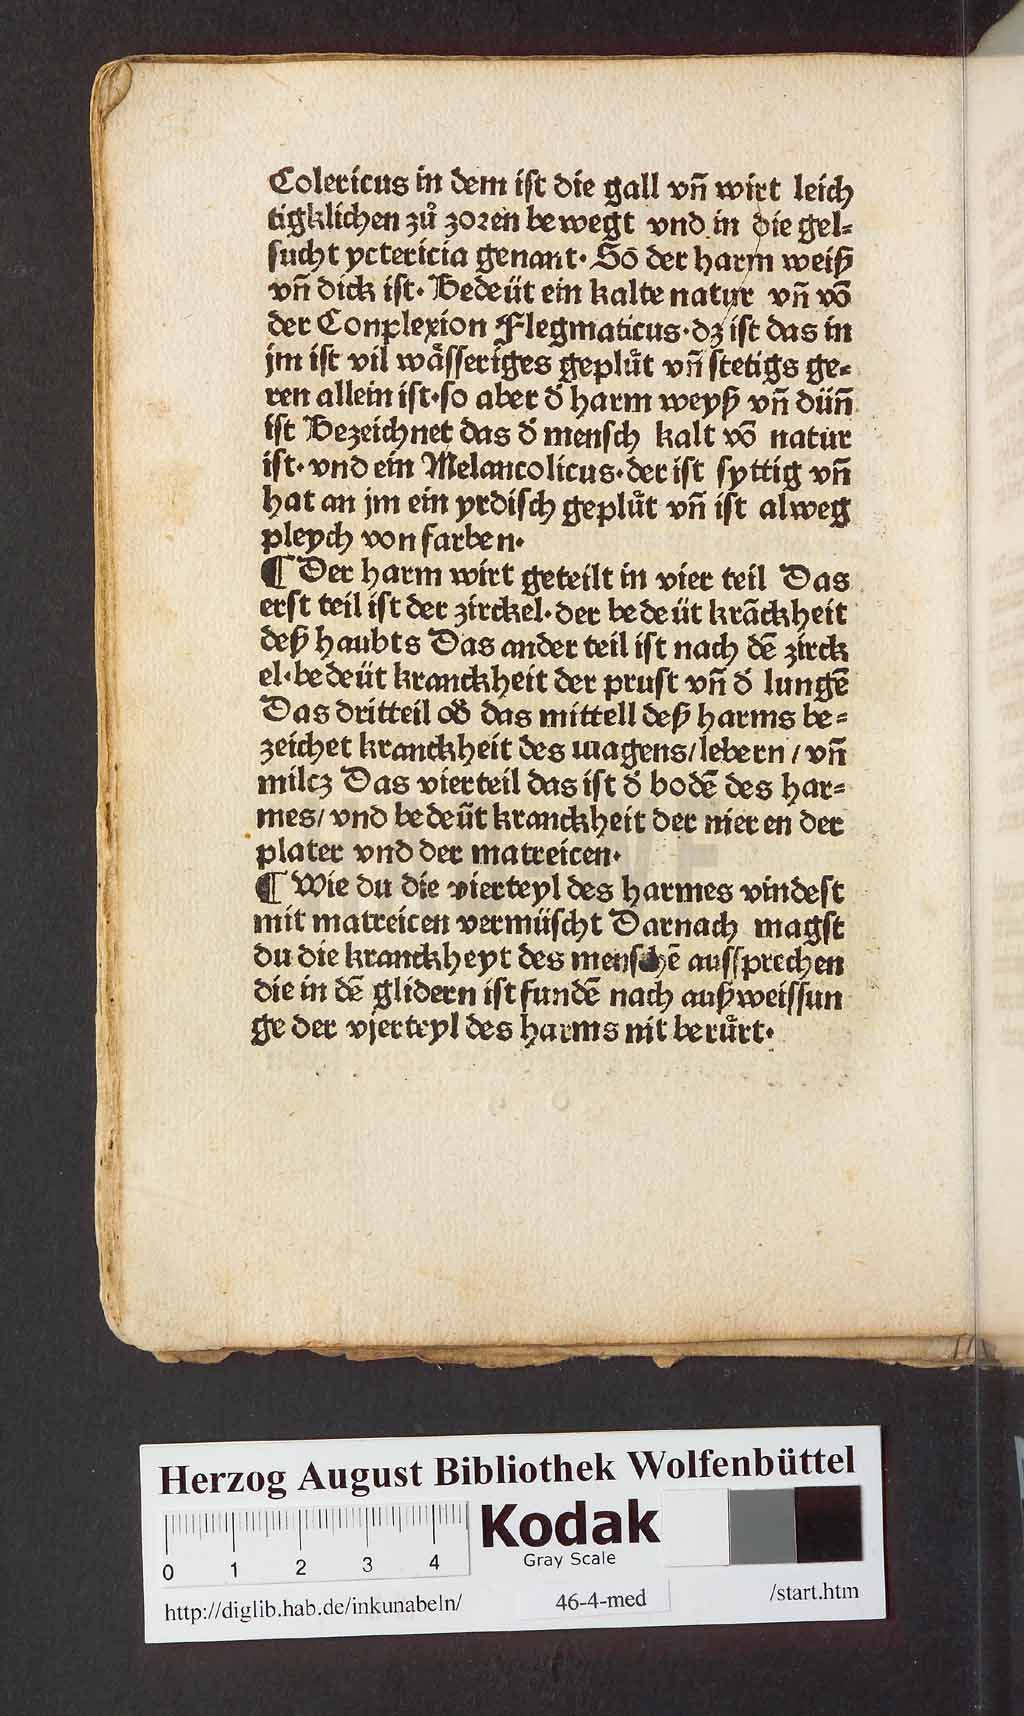 Colericus in dem ist die gall vñ wirt leich
tigklichen zů zoren bewegt vnd in die gel⸗
sucht yctericia genant· So der harm weiß
vñ dick ist· Bedeüt ein kalte natur vñ võ
der Conplexion Flegmaticus·dz ist das in
jm ist vil wåsseriges geplůt vñ stetigs ge⸗
ren allein ist·so aber d̕ harm weyß vñ düñ
ist Bezeichnet das d̕ mensch kalt võ natur
ist· vnd ein Melancolicus·der ist syttig vñ
hat an jm ein yrdisch geplůt vñ ist alweg
pleych von farben·
¶ Der harm wirt geteilt in vier teil Das
erst teil ist der zirckel·der bedeüt krãckheit
deß haubts Das ander teil ist nach dẽ zirck
el·bedeüt kranckheit der prust vñ d̕ lungẽ
Das dritteil od̕ das mittell deß harms be⸗
zeichet kranckheit des magens/lebern/vñ
milcz Das vierteil das ist d̕ bodẽ des har⸗
mes/vnd bedeüt kranckheit der nieren der
plater vnd der matreicen·
¶ Wie du die vierteyl des harmes vindest
mit matreicen vermüscht Darnach magst
du die kranckheyt des menschẽ aussprechen
die in dẽ glidern ist fundẽ nach außweissun
ge der vjerteyl des harms nit berůrt·
Herzog August Bibliothek Wolfenbüttel
Kodak
Gray Scale
0 1 2 3 4
http://diglib.hab.de/inkunabeln/ 46-4-med /start.htm